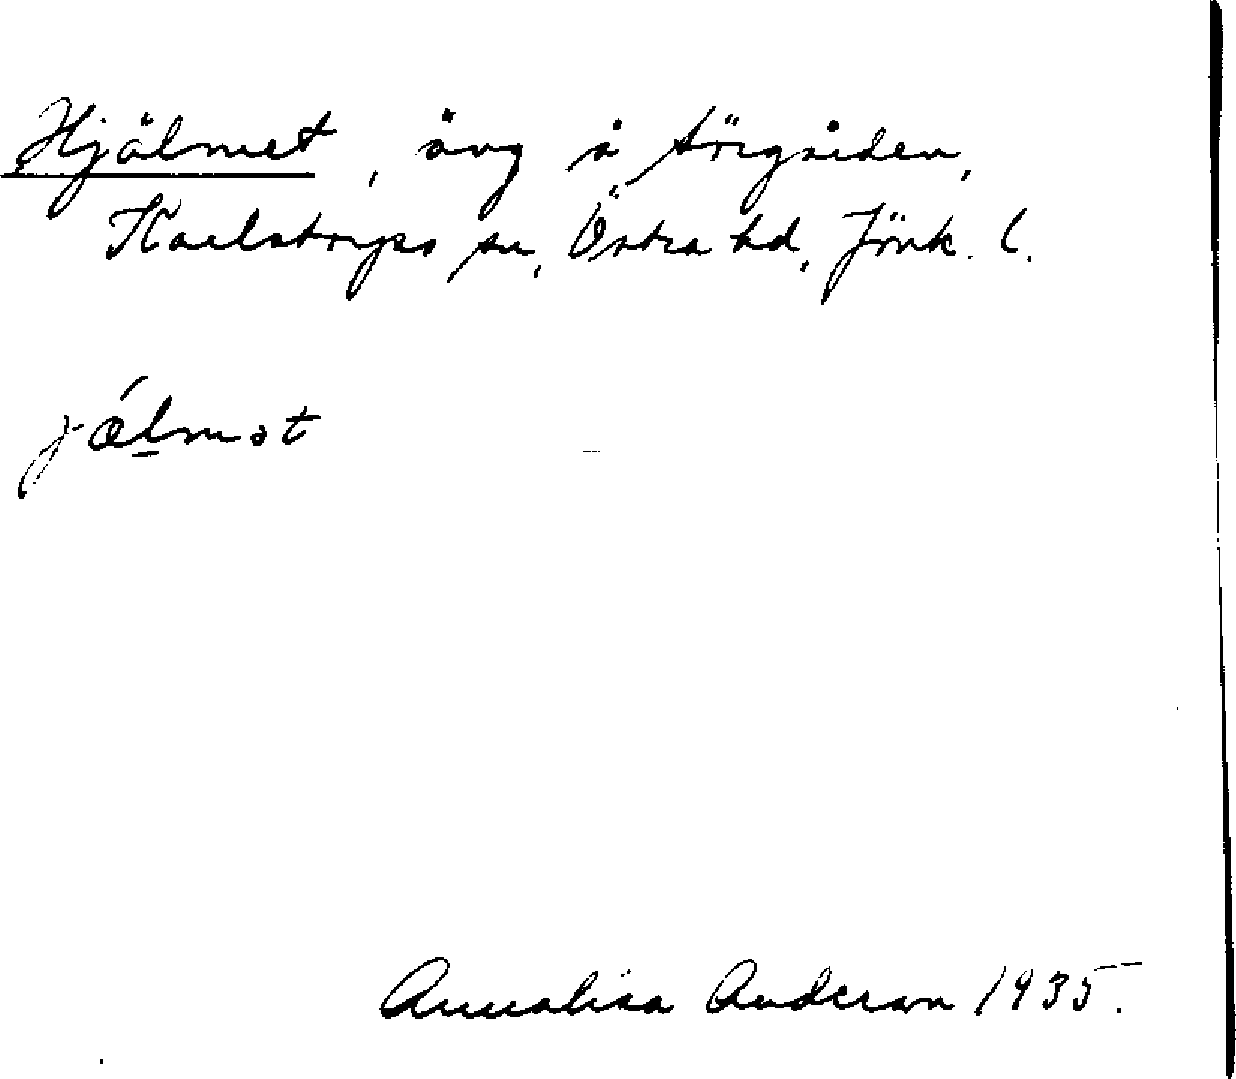 Hjälmet, äng å Sörgården,
Karlstorps sn, Östra hd, Jönk. l.
jǽlmət
Annalisa Anderson 1935.